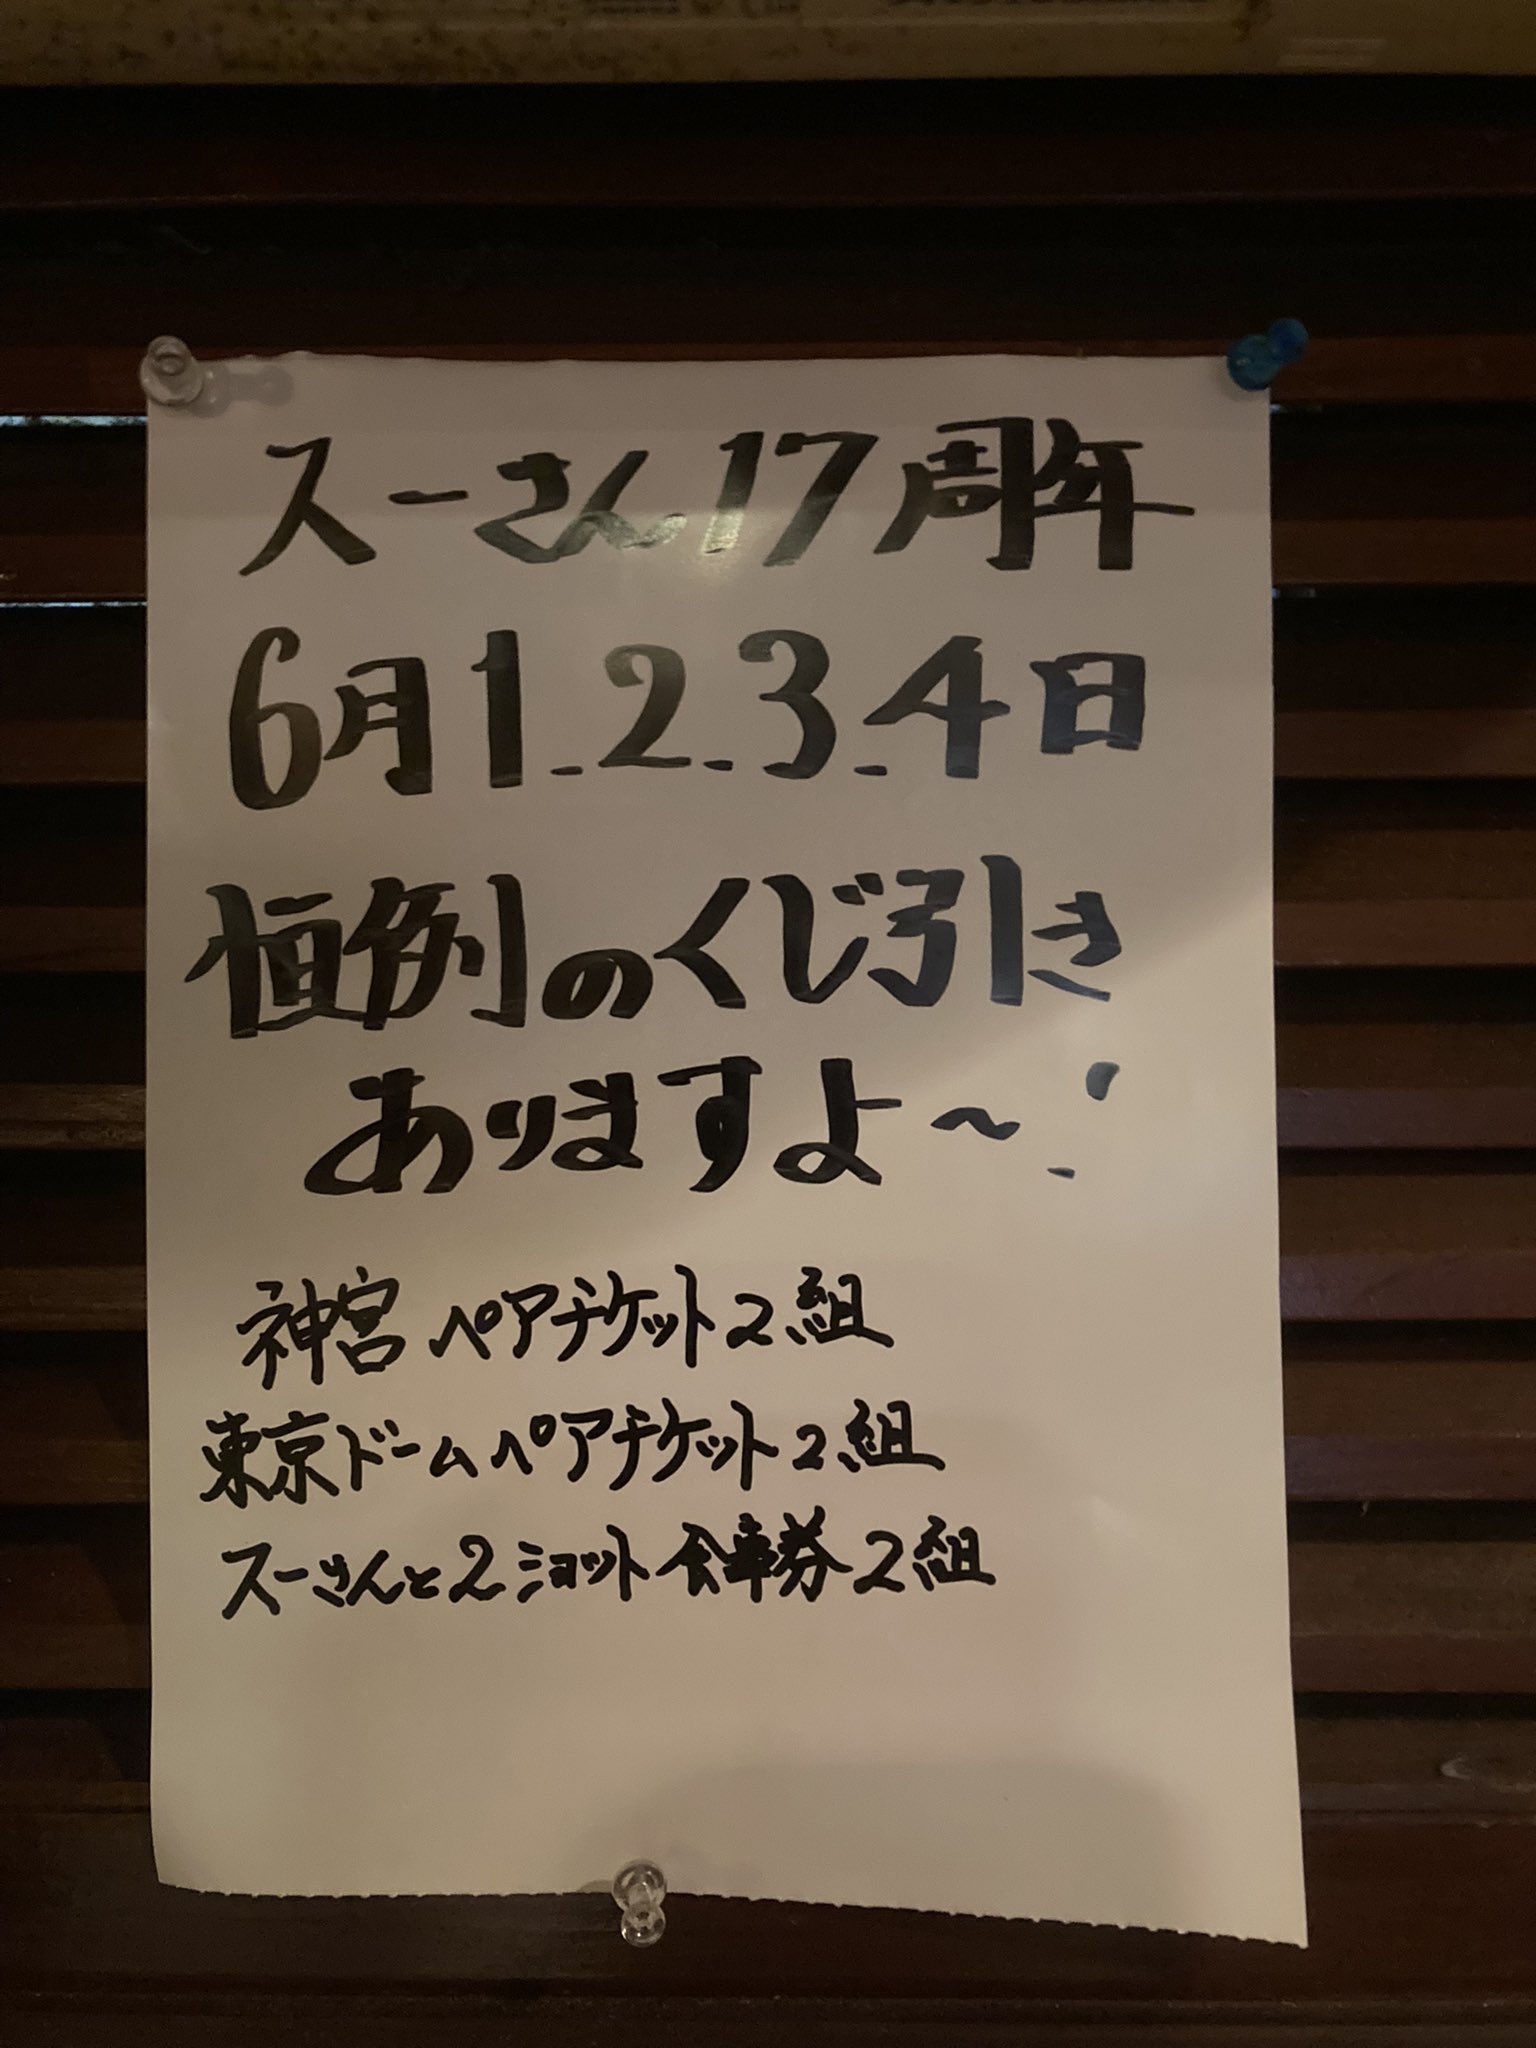 スーさん17周年
6月1.2.3.4日
恒例のくじ引き
ありますよ〜!
神宮ペアチケット2組
東京ドームペアチケット2組
スーさんと2ショット食事券2組